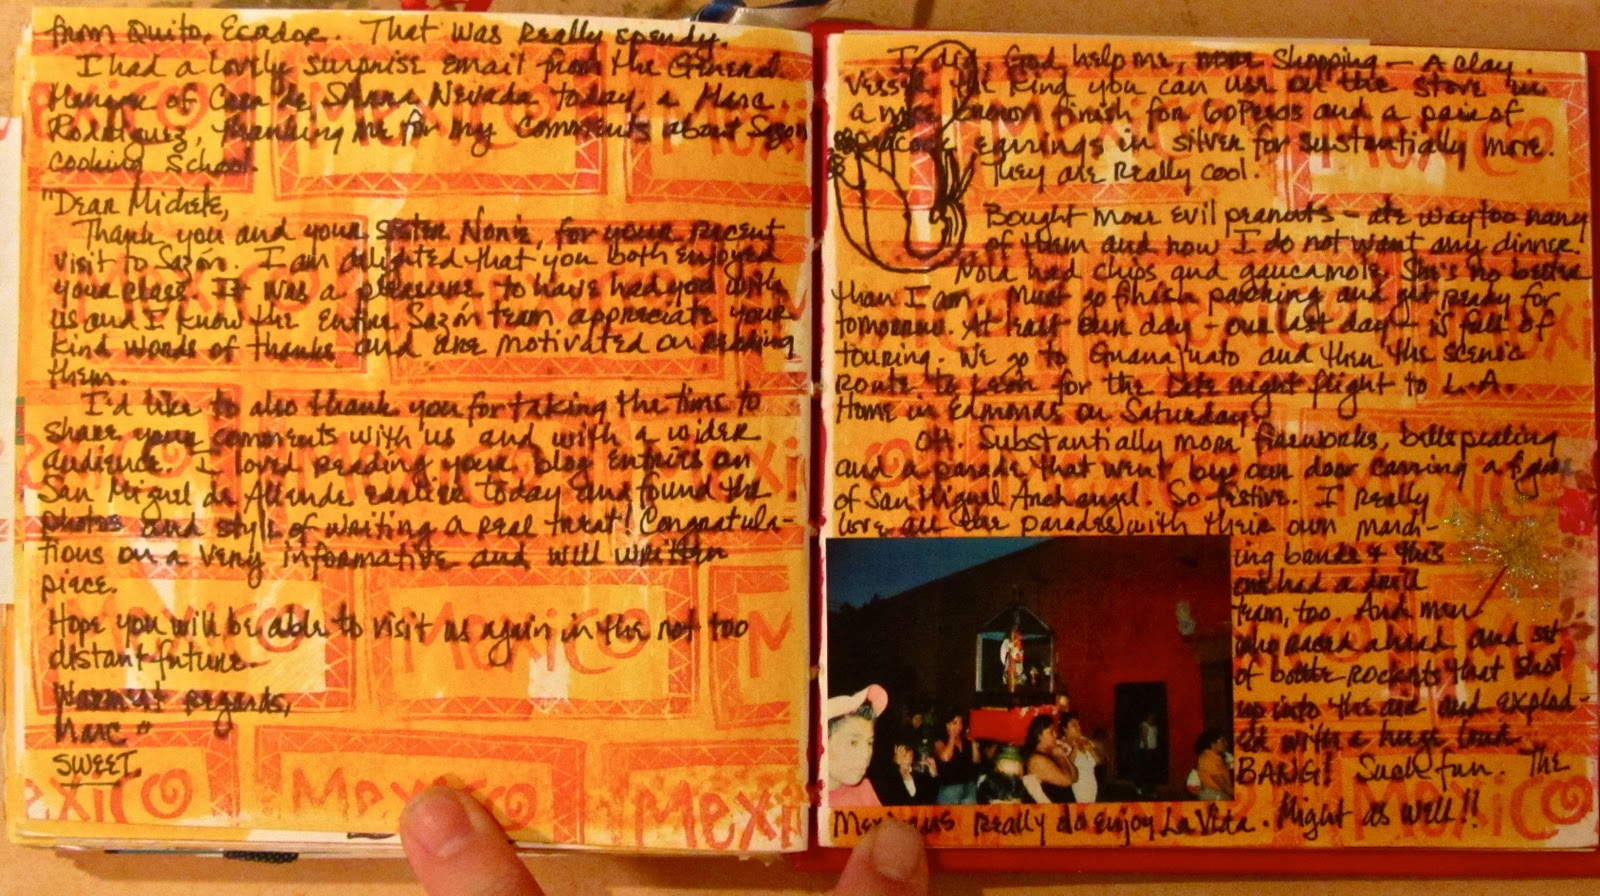 from Quito, Ecador. That was really spendy.
I had a lovely surprise email from the General
Manager of Casa de Sierra Nevada today, a Marc
Rodriguez, thanking me for my comments about Sazon
cooking School.
"Dear Michele,
Thank you and your sister Nonie, for your recent
visit to Sazón. I am delighted that you both enjoyed
your class. It was a pleasure to have had you with
us and I know the entire Sazón team appreciate your
kind words of thanks and are motivated on reading
them.
I'd like to also thank you for taking the time to
share your comments with us and with a wider
audience. I loved reading your blog entries on
San Miguel de Allende earlier today and found the
photos and style of writing a real treat! Congratula-
tions on a very informative and well written
piece.
Hope you will be able to visit us again in the not too
distant future.
Warmest regards,
Marc"
SWEET.
I did, God help me, more shopping - A clay
vessel the kind you can use on the stove in
a nice brown finish for 60 Pesos and a pair of
peacock earrings in silver for substantially more.
They are really cool.
Bought more evil peanuts - ate way too many
of them and now I do not want any dinner.
had chips and gaucamole. She's no better
than I am. Must go finish packing and get ready for
tomorrow. At least our day - our last day - is full of
touring. We go to Guanajuato and then the scenic
route to Leon for the late night flight to L.A.
Home in Edmonds on Saturday.
OH. Substantially more fireworks, bells pealing
and a parade that went by our door carrying a figure
of San Miguel Archangel. So festive. I really
love all the parades with their own march-
ing bands & this
one had a drill
team, too. And men
who raced ahead and set
of bottle rockets that shot
up into the air and explod-
ed with a huge loud
BANG! Such fun. The
Mexicans really do enjoy La Vida. Might as well!!
Mexico
Mexico
Mexico
Mexico
Mexico
Mexico